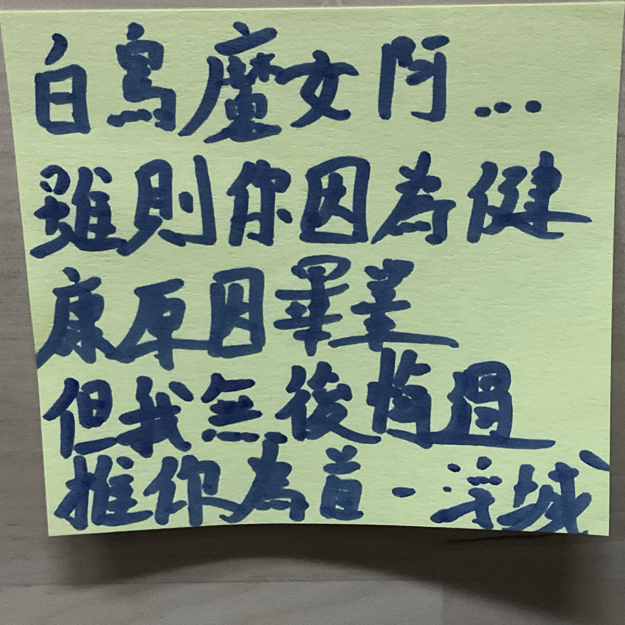 白鳥魔女阿...
雖則你因為健
康原因畢業
但我無後悔過
推你為首 - 浮城